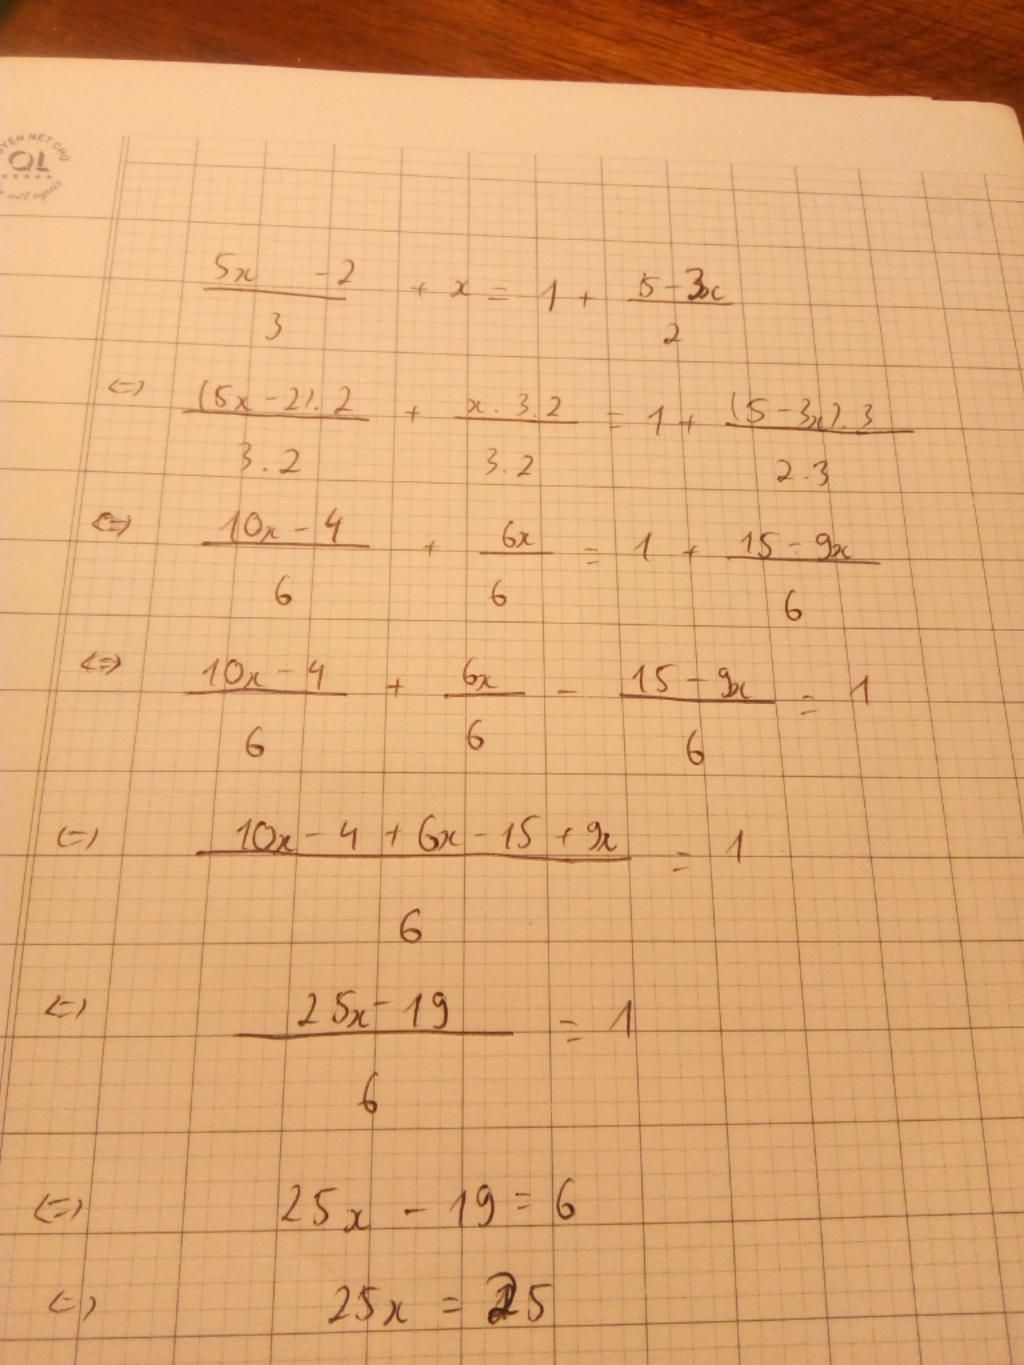 QL
5x - 2 / 3 + x = 1 + 5 - 3x / 2
<=> (5x - 2).2 / 3.2 + x.3.2 / 3.2 = 1 + (5 - 3x).3 / 2.3
<=> 10x - 4 / 6 + 6x / 6 = 1 + 15 - 9x / 6
<=> 10x - 4 / 6 + 6x / 6 - 15 - 9x / 6 = 1
<=> 10x - 4 + 6x - 15 + 9x / 6 = 1
<=> 25x - 19 / 6 = 1
<=> 25x - 19 = 6
<=> 25x = 25